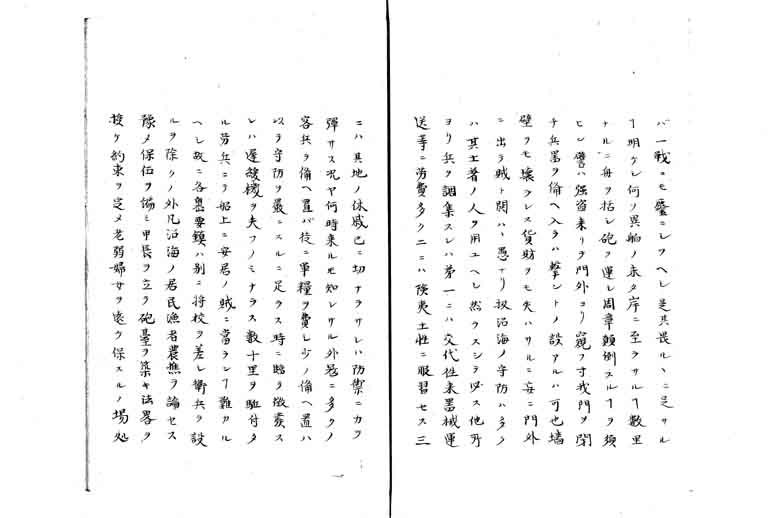 バ一戦ニモ塵ニシツヘシ是其畏ルヽニ足サル
ヿ明ケシ何ノ異船ノ未タ岸ニ至ラサルヿ数里
ナルニ毎ヲ括シ砲ヲ運シ周章顛倒スルヿヲ須
ヒン譬ハ強盗来リテ門外ヨリ窺フ寸我門ヲ閉
チ兵器ヲ備ヘ入ラハ撃ントノ設アルハ可也墻
壁ヲモ壊ラレス貨財ヲモ失ハサルニ妄ニ門外
ニ出テ賊ト闘ハヽ愚ナリ扨沿海ノ守防ハ多ク
ハ其土著ノ人ヲ用ユヘシ然ラスシテ必ス他所
ヨリ兵ヲ調集スレハ第一ニハ交代往来器械運
送等ニ労費多ク二ニハ険夷土性ニ服習セス三
ニハ其地ノ休戚己ニ切ナラサレハ防禦ニカヲ
弾サス况ヤ何時来ルモ知レサル外冦ニ多クノ
客兵ヲ備ヘ置バ徒ニ軍糧ヲ費シ少ノ備ヘ置ハ
以テ守防ヲ嚴ニスルニ足ラス時ニ臨テ徴發ス
レハ遅緩機ヲ失フノミナラス数十里ヲ駈付タ
ル労兵ニテ船上ニ安居ノ賊ニ當ランヿ難カル
ヘシ故ニ各島要鎮ハ別ニ将校ヲ差シ衛兵ヲ設
ルヲ除クノ外凡沿海ノ居民漁者農樵ヲ論セス
豫メ保伍ヲ編ミ甲長ヲ立テ砲臺ヲ築キ法畧ヲ
授ケ約束ヲ定メ老弱婦女ヲ遠ケ保スルノ場処